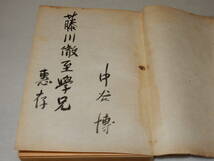 藤川徹至學兄
惠存
中谷博